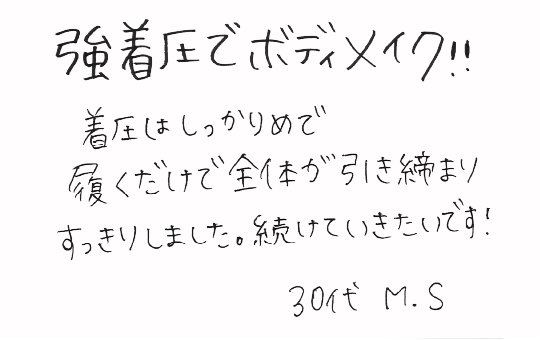 強着圧でボディメイク!!
着圧はしっかりめで
履くだけで全体が引き締まり
すっきりしました。続けていきたいです!
30代 M.S